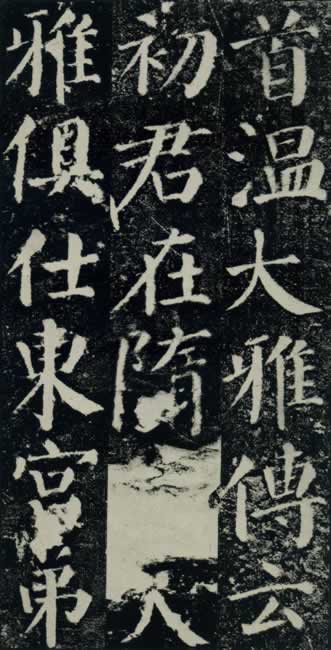 首温大雅傳云
初君在隋
雅俱仕東宮弟